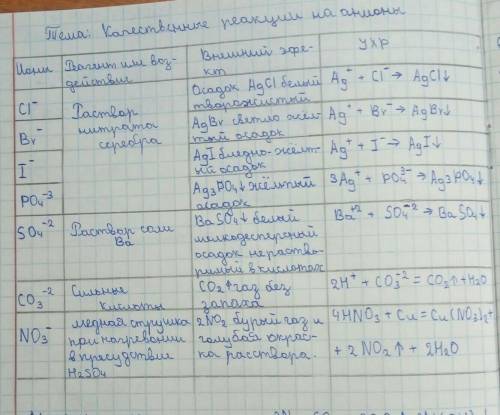 Тема: Качественные реакции на анионы
Ионы
Реагент или воз-
действие
Внешний эфе-
кт
УХР
Cl⁻
Раствор
нитрата
серебра
Осадок AgCl белый
творожистый
Ag⁺ + Cl⁻ → AgCl↓
Br⁻
AgBr светло жёл-
тый осадок
Ag⁺ + Br⁻ → AgBr↓
I⁻
AgI бледно-жёлт-
ый осадок
Ag⁺ + I⁻ → AgI↓
PO₄⁻³
Ag₃PO₄↓ жёлтый
осадок
3Ag⁺ + PO₄³⁻ → Ag₃PO₄↓
SO₄⁻²
Раствор соли
Ba
BaSO₄↓ белый
мелкодесперсный
осадок нераство-
римый в кислотах
Ba⁺² + SO₄⁻² → BaSO₄↓
CO₃⁻²
Сильные
кислоты
CO₂↑ газ без
запаха
2H⁺ + CO₃⁻² = CO₂↑ + H₂O
NO₃⁻
медная стружка
при нагревании
в присудствие
H₂SO₄
2NO₂ бурый газ и
голубой окрас-
ка расствора.
4HNO₃ + Cu = Cu(NO₃)₂+
+ 2NO₂↑ + 2H₂O